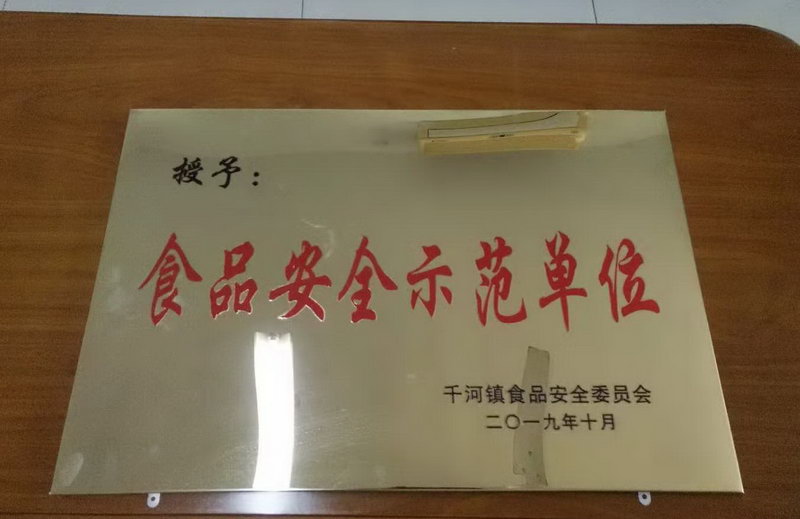 授予：
食品安全示范单位
千河镇食品安全委员会
二〇一九年十月